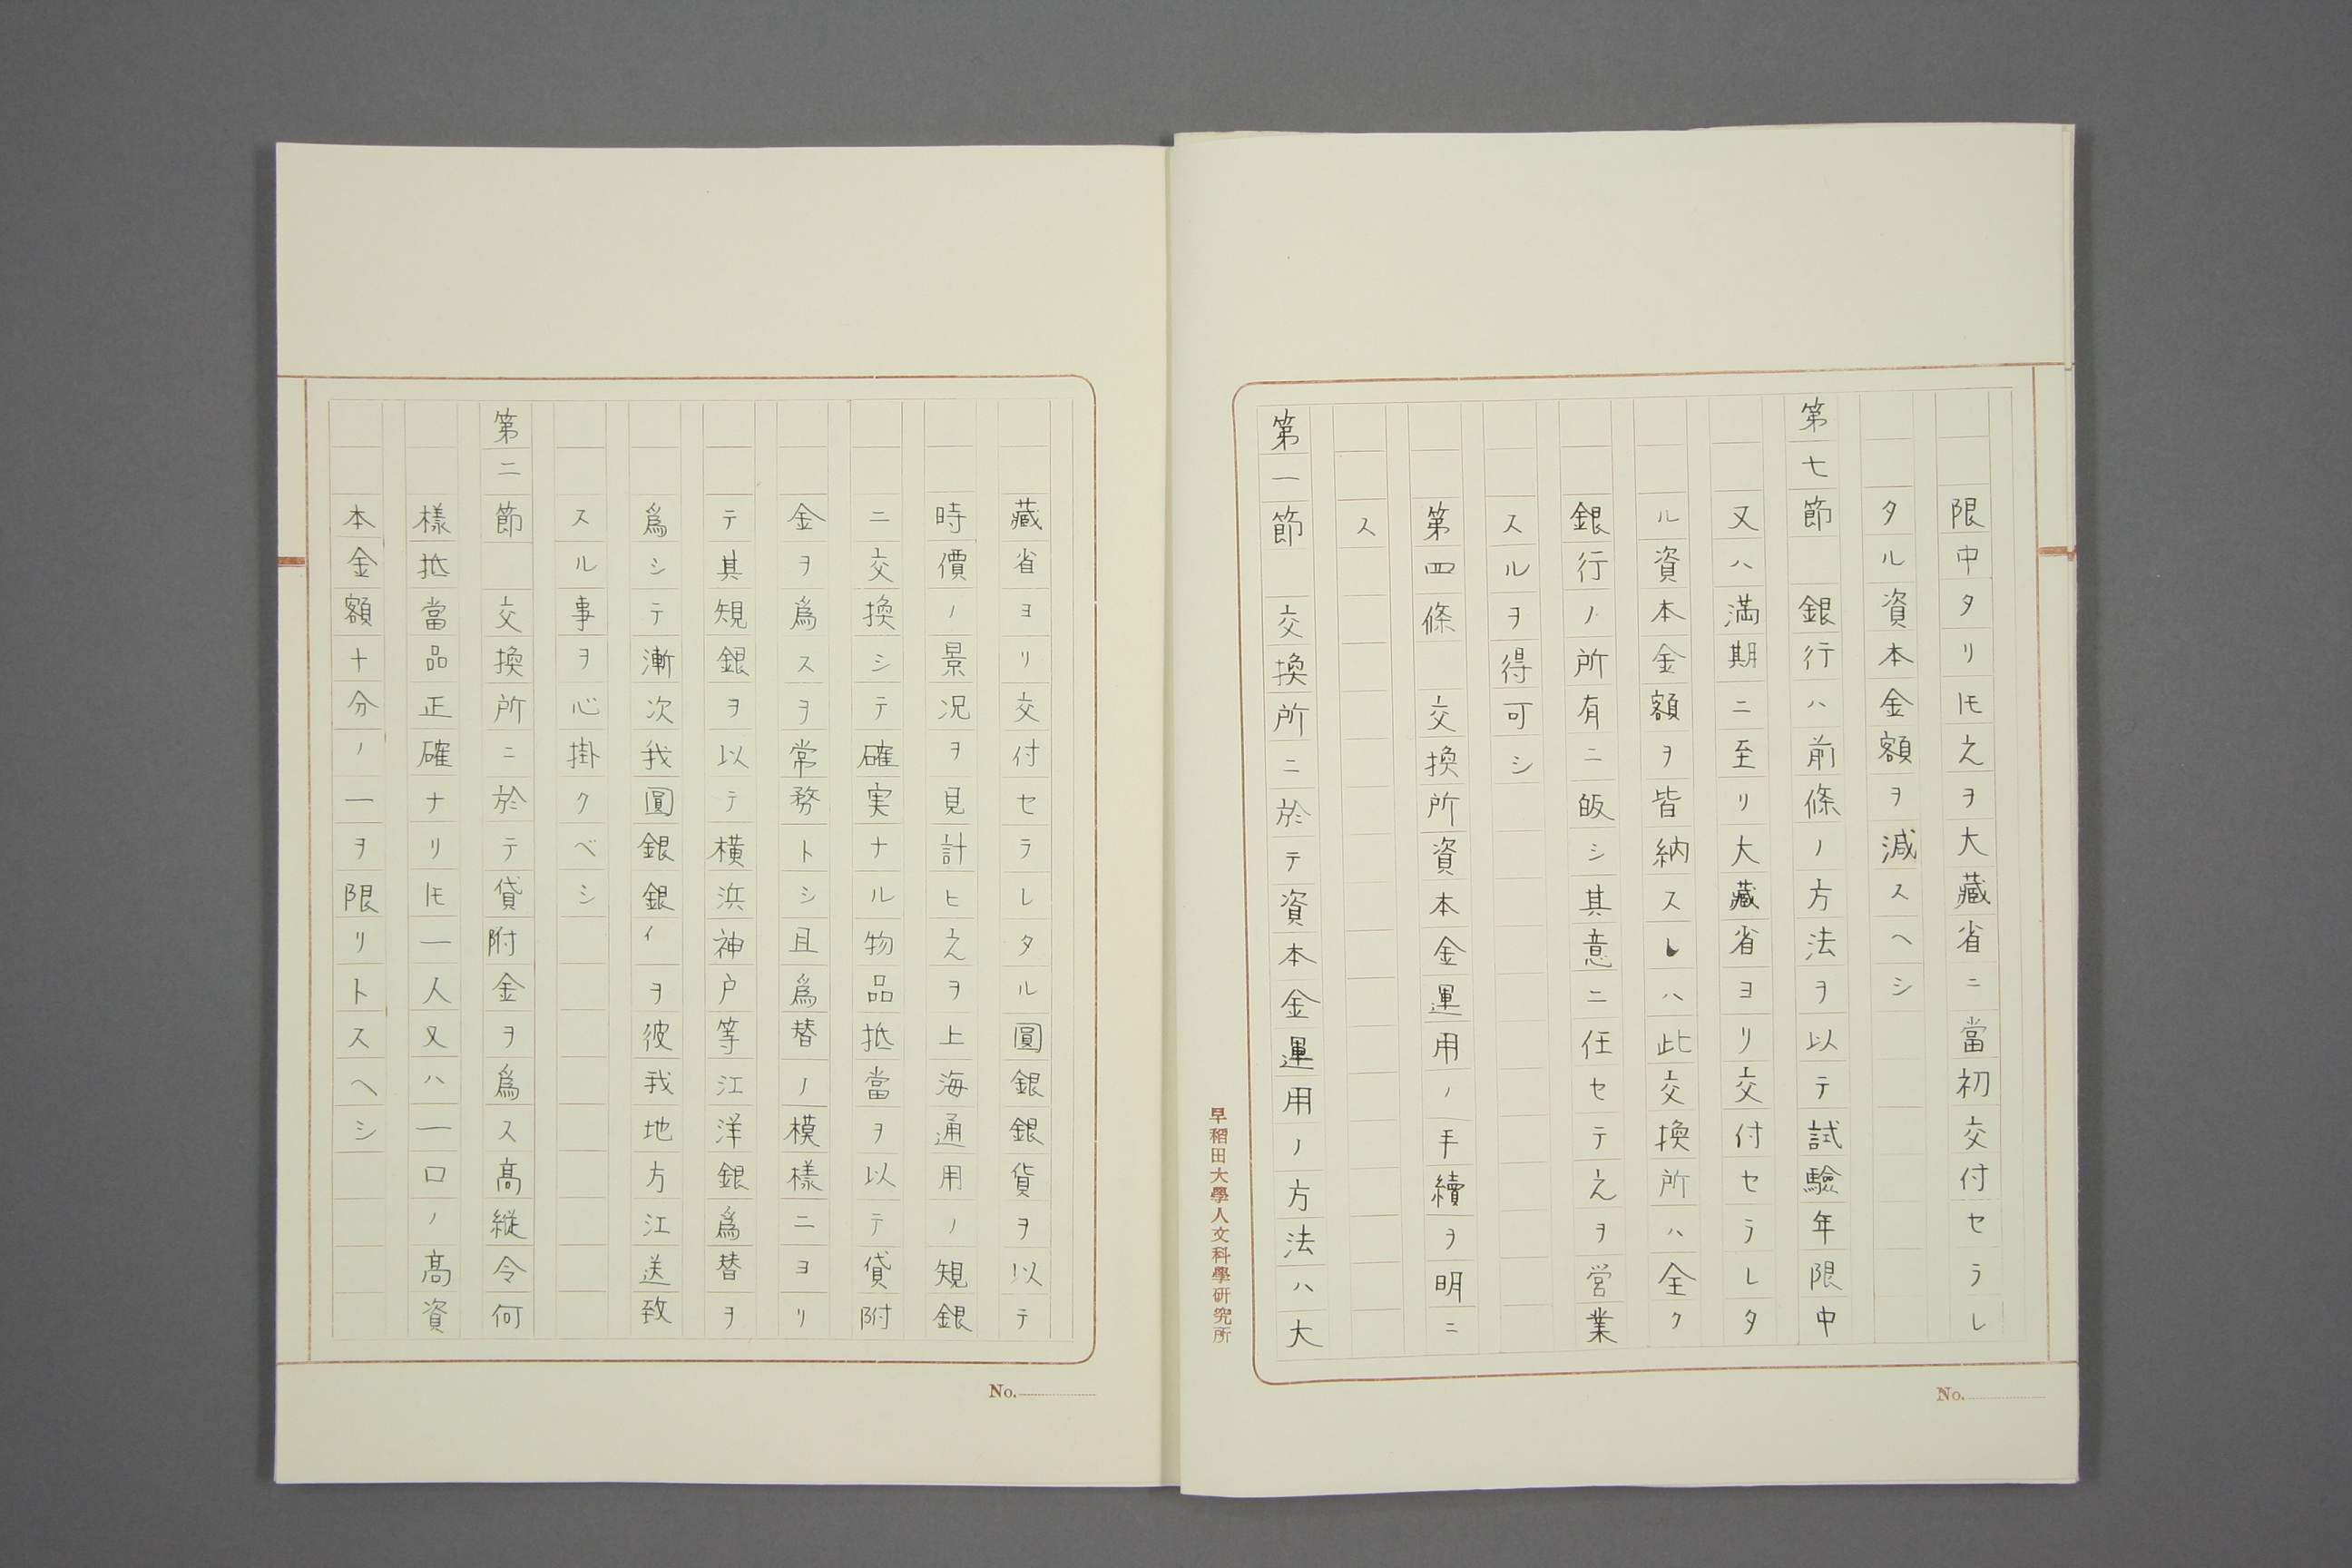 限中タリ𪜈之ヲ大藏省ニ當初交付セラレ
タル資本金額ヲ減スヘシ
第七節　銀行ハ前條ノ方法ヲ以テ試驗年限中
又ハ満期ニ至リ大藏省ヨリ交付セラレタ
ル資本金額ヲ皆納スレハ此交換所ハ全ク
銀行ノ所有ニ皈シ其意ニ任セテ之ヲ営業
スルヲ得可シ
第四條　交換所資本金運用ノ手續ヲ明ニ
ス
第一節　交換所ニ於テ資本金運用ノ方法ハ大
早稻田大學人文科學研究所
No.
藏省ヨリ交付セラレタル圓銀銀貨ヲ以テ
時價ノ景況ヲ見計ヒ之ヲ上海通用ノ規銀
ニ交換シテ確実ナル物品抵當ヲ以テ貸附
金ヲ爲スヲ常務トシ且爲替ノ模様ニヨリ
テ其規銀ヲ以テ横浜神戸等江洋銀爲替ヲ
爲シテ漸次我圓銀銀イヲ彼我地方江送致
スル事ヲ心掛クベシ
第二節　交換所ニ於テ貸附金ヲ爲ス髙縦令何
樣抵當品正確ナリ𪜈一人又ハ一口ノ髙資
本金額十分ノ一ヲ限リトスヘシ
No.